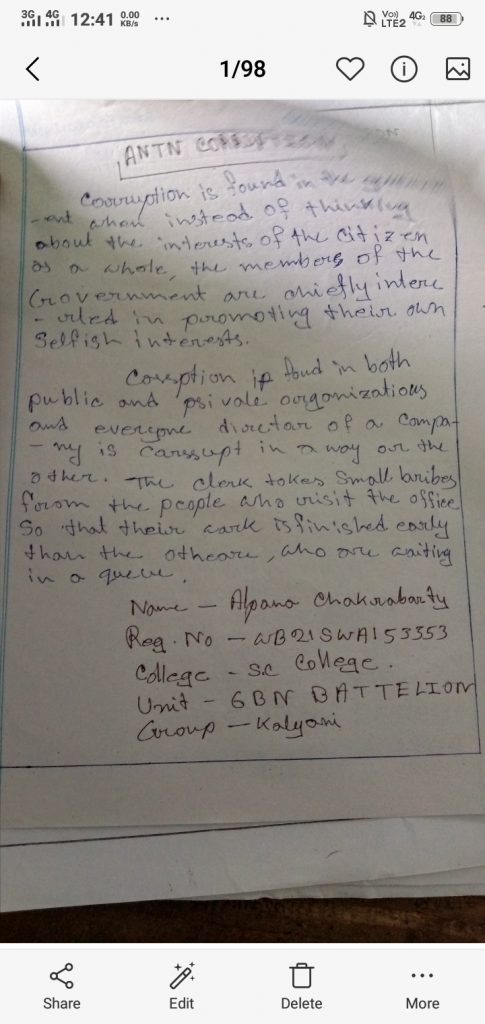 3G 4G 12:41 0.00 KB/s ... Vo) LTE2 4G2 88
1/98
ANTN CORRUPTION
Coorruption is found in the
-ent when instead of thinking
about the interests of the citizen
as a whole, the members of the
Government are chiefly intere
-sted in puromoting their own
Selfish interests.
Corrsption ip foud in both
public and psivale oorgonizations
and everyone dirretar of a compa-
-ny is Carssupt in a way our the
other. The clerk tokes Small baribes
foorom the people who visit the office
So that their work is finished early
than the otheare, who are waiting
in a queue.
Name - Alpana Chakrabarty
Reg. No - WB21SWA153353
College - S.C College.
Unit - 6BN BATTELION
Group - Kalyani
Share Edit Delete More